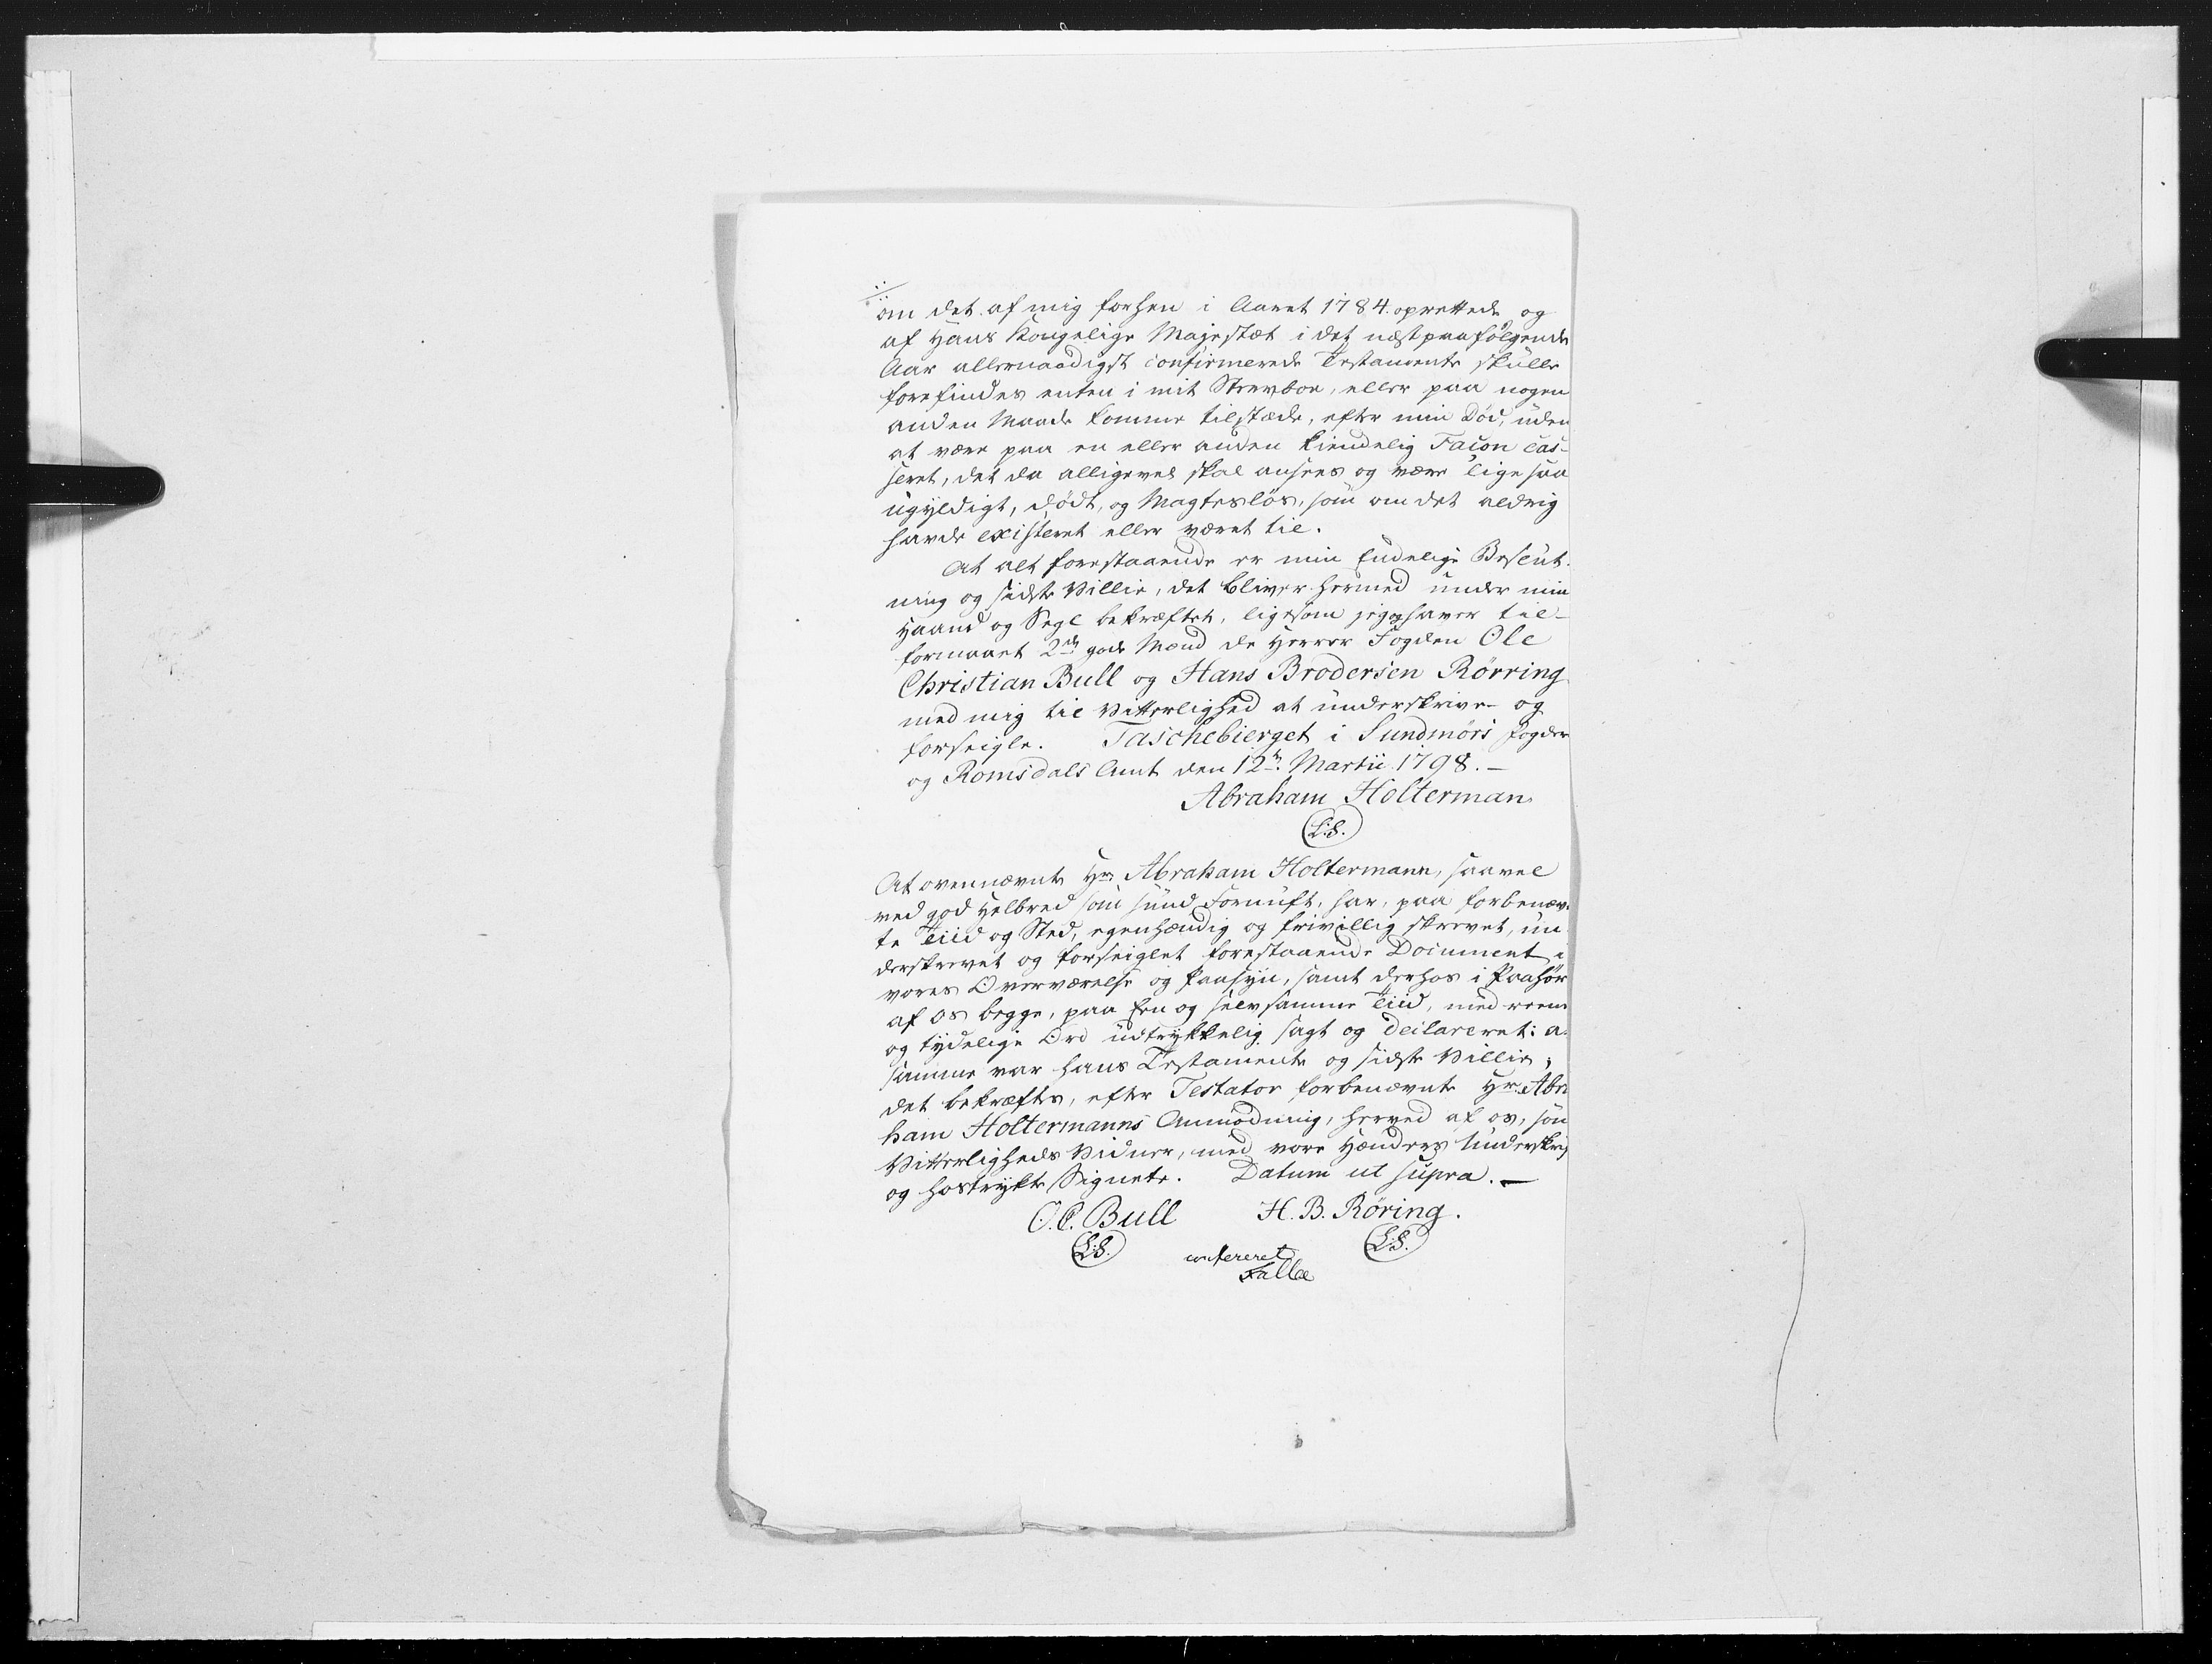 om det af mig forhen i Aaret 1784. oprettede og
af Hans Kongelige Majestæt i det næstpaafölgende
Aar allernaadigst confirmerede Testamente skulle
forefindes enten i mit Sterboe, eller paa nogen
anden Maade komme tilstæde, efter min Död, uden
at være paa en eller anden kiendelig Facon cas-
seret, det da alligevel skal ansees og være lige saa
ugyldigt, dödt, og Magteslös, som om det aldrig
havde existeret eller været til.
At alt forestaaende er min Endelige Beslut-
ning og sidste Villie, det bliver hermed under min
Haand og Segl bekræftet, ligesom jeg og haver til-
formaaet 2de gode Mænd de Herrer Fogden Ole
Christian Bull og Hans Brodersen Rörring
med mig til Vitterlighed at underskrive og
forseigle. Taschebierget i Sundmörs Fogderi
og Romsdals Amt den 12te Martii 1798.-
Abraham Holterman
(L.S.)
At ovennævnte Hr. Abraham Holtermann, saavel
ved god Helbred som sund Fornuft, har, paa forbenæv-
te Tiid og Sted, egenhændig og frivillig skrevet, un
derskrevet og forseiglet forestaaende Document i
vores Overværelse og Paasyn, samt derhos i Paahör
af os begge, paa Een og selvsamme Tiid, med reene
og tydelige Ord udtrykkelig sagt og declareret: a
samme var hans Testamente og sidste Villie;
det bekræftes, efter Testator forbenævnte Hr. Abra
ham Holtermanns Anmodning, herved af os, som
Vitterligheds Vidner, med vore Hænders Underskrif
og hostrykte Signete. Datum ut supra.-
O.C. Bull H. B. Röring.
(L.S.) (L.S.)
confereret
Falbe